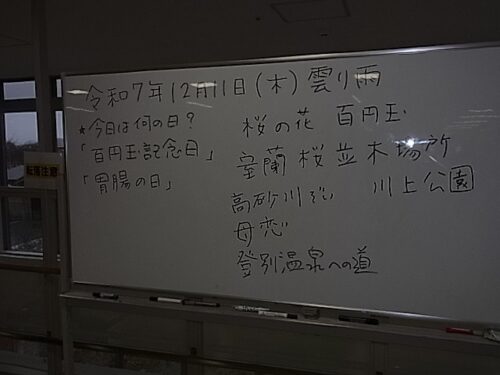 令和7年12月11日(木)雲り雨
★今日は何の日?
「百円玉記念日」
「胃腸の日」
桜の花 百円玉
室蘭 桜並木場所
高砂川ぞい 川上公園
母恋
登別温泉への道
転落注意